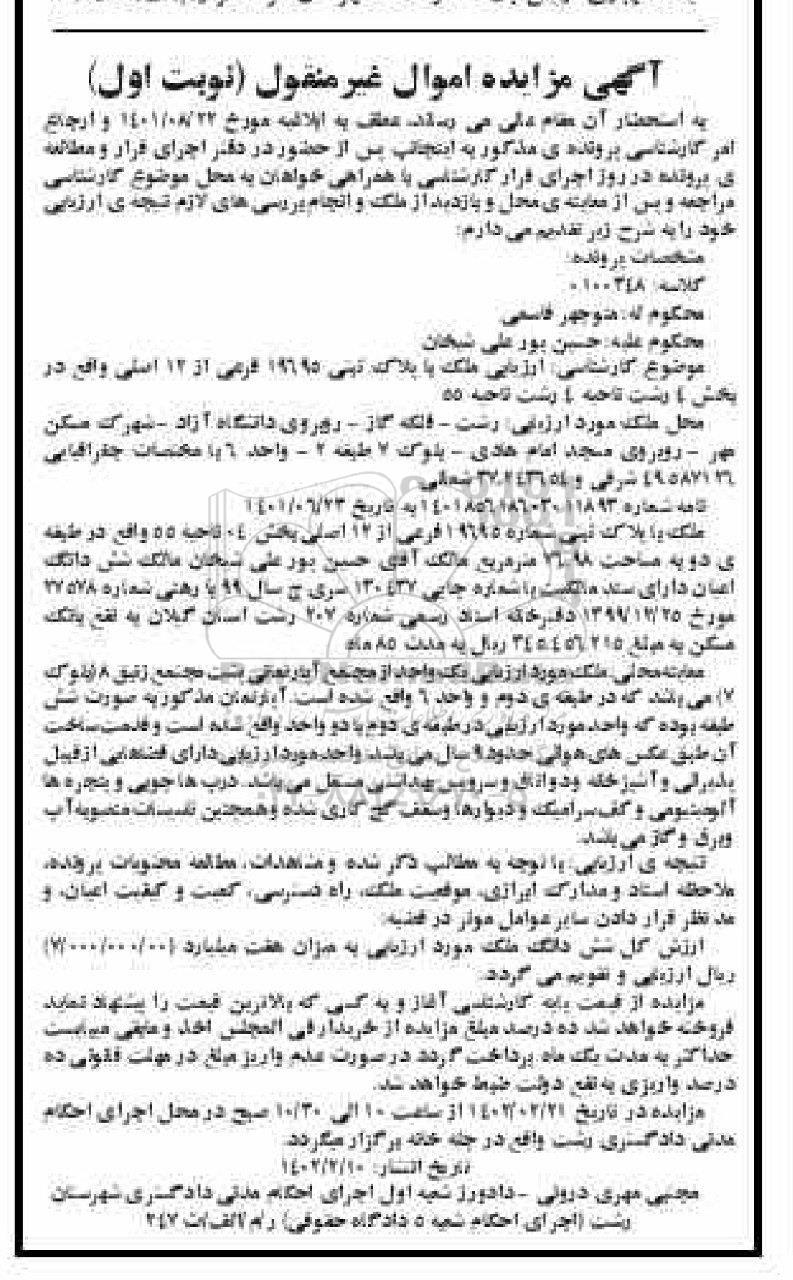 آگهی مزایده اموال غیرمنقول (نوبت اول)
به استحضار آن مقام عالی می رساند، عطف به ابلاغیه مورخ ۱۴۰۱/۰۸/۲۲ و ارجاع
امر کارشناسی پرونده ی مذکور به اینجانب پس از حضور در دفتر اجرای قرار و مطالعه
ی پرونده در روز اجرای قرار کارشناسی با همراهی خواهان به محل موضوع کارشناسی
مراجعه و پس از معاینه ی محل و بازدید از ملک و انجام بررسی های لازم نتیجه ی ارزیابی
خود را به شرح زیر تقدیم می دارم:
مشخصات پرونده:
کلاسه: ۰۱۰۰۳۴۸
محکوم له: منوچهر قاسمی
محکوم علیه: حسین پور علی شیخان
موضوع کارشناسی: ارزیابی ملک با پلاک ثبتی ۱۹۶۹۵ فرعی از ۱۲ اصلی واقع در
بخش ٤ رشت ناحیه ٤ رشت ناحیه ۵۵
محل ملک مورد ارزیابی: رشت - فلکه گاز - روبروی دانشگاه آزاد - شهرک مسکن
مهر - روبروی مسجد امام هادی - بلوک ۷ طبقه ۲ - واحد ٦ با مختصات جغرافیایی
شرقی و شمالی
نامه شماره به تاریخ ۱٤۰۱/۰٦/۲۳
ملک با پلاک ثبتی شماره ۱۹٦۹۵ فرعی از ۱۲ اصلی بخش ۰٤ ناحیه ۵۵ واقع در طبقه
ی دو به مساحت ۷٦.۹۸ مترمربع مالک آقای حسین پور علی شیخان مالک شش دانگ
اعیان دارای سند مالکیت با شماره چاپی ۱۳۰٤۳۷ سری ج سال ۹۹ با رهنی شماره ۲۷۵۷۸
مورخ ۱۳۹۹/۱۲/۲۵ دفترخانه اسناد رسمی شماره ۲۰۷ رشت استان گیلان به نفع بانک
مسکن به مبلغ ۳٤۵،٤۵٦،۲۱۵ ریال به مدت ۸۵ ماه
معاینه محلی: ملک مورد ارزیابی یک واحد از مجتمع آپارتمانی بنت مجتمع زنبق ۸ (بلوک
۷) می باشد که در طبقه ی دوم و واحد ٦ واقع شده است. آپارتمان مذکور به صورت شش
طبقه بوده که واحد مورد ارزیابی در طبقه ی دوم با دو واحد واقع شده است و قدمت ساخت
آن طبق عکس های هوائی حدود ۹ سال می باشد. واحد مورد ارزیابی دارای فضاهایی از قبیل
پذیرائی و آشپزخانه و دو اتاق و سرویس بهداشتی مستقل می باشد. درب ها چوبی و پنجره ها
آلومینیومی و کف سرامیک و دیوارها و سقف گچ کاری شده و همچنین تاسیسات منصوبه آب
و برق و گاز می باشد.
نتیجه ی ارزیابی: با توجه به مطالب ذکر شده و مشاهدات، مطالعه محتویات پرونده،
ملاحظه اسناد و مدارک ابرازی، موقعیت ملک، راه دسترسی، کمیت و کیفیت اعیان، و
مد نظر قرار دادن سایر عوامل موثر در قضیه:
ارزش کل شش دانگ ملک مورد ارزیابی به میزان هفت میلیارد (۷/۰۰۰/۰۰۰/۰۰)
ریال ارزیابی و تقویم می گردد.
مزایده از قیمت پایه کارشناسی آغاز و به کسی که بالاترین قیمت را پیشنهاد نماید
فروخته خواهد شد ده درصد مبلغ مزایده از خریدار فی المجلس اخذ و مابقی میبایست
حداکثر به مدت یک ماه پرداخت گردد در صورت عدم واریز مبلغ در مهلت قانونی ده
درصد واریزی به نفع دولت ضبط خواهد شد.
مزایده در تاریخ ۱٤۰۲/۰۲/۲۱ از ساعت ۱۰ الی ۱۰/۳۰ صبح در محل اجرای احکام
مدنی دادگستری رشت واقع در چله خانه برگزار میگردد.
تاریخ انتشار: ۱٤۰۲/۲/۱۰
مجتبی مهری درونی - دادورز شعبه اول اجرای احکام مدنی دادگستری شهرستان
رشت (اجرای احکام شعبه ۵ دادگاه حقوقی) ر/م/الف/ث ۲٤۷